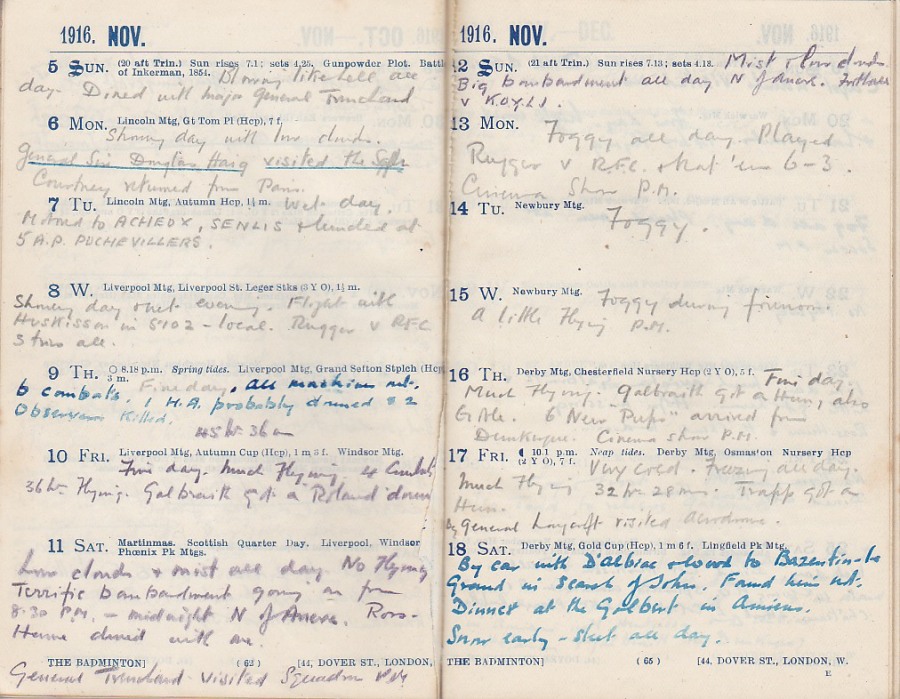 1916. NOV.
5 SUN. (20 aft Trin.) Sun rises 7.1; sets 4.25. Gunpowder Plot. Battle
of Inkerman, 1854. Blowing like hell all
day. Dined with Major General Trenchard
6 MON. Lincoln Mtg, Gt Tom Pl (Hcp), 7 f.
Showery day with low clouds.
General Sir Douglas Haig visited the
Courtney returned from Paris.
7 TU. Lincoln Mtg, Autumn Hcp, 1½ m. Wet day.
Motored to ACHEUX, SENLIS & lunched at
5 A.P. PUCHEVILLERS.
8 W. Liverpool Mtg, Liverpool St. Leger Stks (3 Y O), 1½ m.
Showery day & wet evening. Flight with
Huskisson in 5102 - local. Rugger v RFC
3 tries all.
9 TH. ○ 8.18 p.m. Spring tides. Liverpool Mtg, Grand Sefton Stplch (Hcp)
3 m. Fine day. All machines out.
6 combats. 1 H.A. probably downed & 2
Observers killed.
45 hr. 36 m
10 FRI. Liverpool Mtg, Autumn Cup (Hcp), 1 m 3 f. Windsor Mtg.
Fine day. Much Flying 4 Combats
36 hr. Flying. Galbraith got a Roland down
11 SAT. Martinmas. Scottish Quarter Day. Liverpool, Windsor
Phœnix Pk Mtgs.
Low clouds & mist all day. No Flying
Terrific bombardment going on from
8.30 P.M. - midnight N of Ancre. Ross-
Hume dined with me.
THE BADMINTON] (62) [44, DOVER ST., LONDON,
General Trenchard visited Squadron
1916. NOV.
12 SUN. (21 aft Trin.) Sun rises 7.13; sets 4.18. Mist & low clouds.
Big bombardment all day N of Ancre. Football
v K.O.Y.L.I.
13 MON. Foggy all day. Played
Rugger v R.F.C. & beat 'em 6-3.
Cinema Show P.M.
14 TU. Newbury Mtg. Foggy.
15 W. Newbury Mtg. Foggy during forenoon.
A little Flying P.M.
16 TH. Derby Mtg, Chesterfield Nursery Hcp (2 Y O), 5 f. Fine day.
Much Flying. Galbraith got a Hun, also
Goble. 6 New "Pups" arrived from
Dunkerque. Cinema show P.M.
17 FRI. ☾ 10.1 p.m. Neap tides. Derby Mtg, Osmaston Nursery Hcp
(2 Y O), 7 f. Very cold. Freezing all day.
Much Flying 32 hr 28 ms. Trapp got a
Hun.
General Longcroft visited Aerodrome.
18 SAT. Derby Mtg, Gold Cup (Hcp), 1 m 6 f. Lingfield Pk Mtg.
By car with D'Albiac & to Bazentin-le
Grand in Search of John. Found him not.
Dinner at the Galbert in Amiens.
Snow early - sleet all day.
THE BADMINTON] (65) [44, DOVER ST., LONDON, W.
E